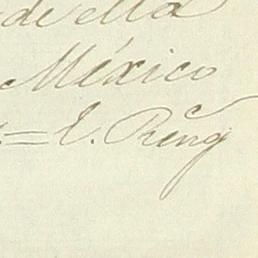 de ella
México
= E. Reng